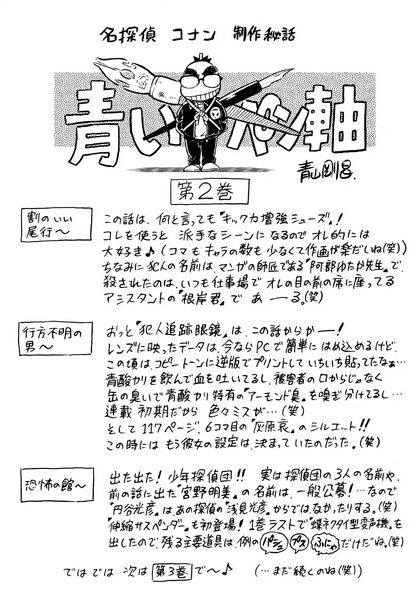 名探偵 コナン 制作秘話
青い ペン軸
青山剛昌.
第2巻
割のいい
尾行〜
この話は、何と言っても『キック力増強シューズ』!
コレを使うと 派手なシーンになるので オレ的には
大好き♪(コマもキャラの数も少なくて作画が楽だしね(笑))
ちなみに犯人の名前は、マンガの師匠である『阿部ゆたか先生』で、
殺されたのは、いつも仕事場で オレの目の前の席に座ってる
アシスタントの『根岸君』で あーる。(笑)
行方不明の
男〜
おっと『犯人追跡眼鏡』は、この話からかー!
レンズに映ったデータは、今ならPCで簡単に はめ込めるけど、
この頃は、コピートーンに逆版でプリントして いちいち貼ってたなぁ…
青酸カリを飲んで血を吐いてるし、被害者の口からじゃなく
缶の臭いで青酸カリ特有の『アーモンド臭』を嗅ぎ分けてるし…
連載 初期だから 色々ミスが…(笑)
そして117ページ、6コマ目の『灰原哀』のシルエット!!
この時には もう彼女の設定は、決まっていたのだった。(笑)
恐怖の館〜
出た出た!少年探偵団!! 実は探偵団の3人の名前や、
前の話に出た『宮野明美』の名前は、一般公募!…なので
『円谷光彦』は、あの探偵の『浅見光彦』からでは、なかったりする。(笑)
『伸縮サスペンダー』も初登場!1巻ラストで『蝶ネクタイ型変声機』を
出したので、残る主要道具は、例の パシュ プス ふにゃ だけだね。(笑)
ではでは 次は 第3巻 で〜♪ (…まだ続くのね(笑))